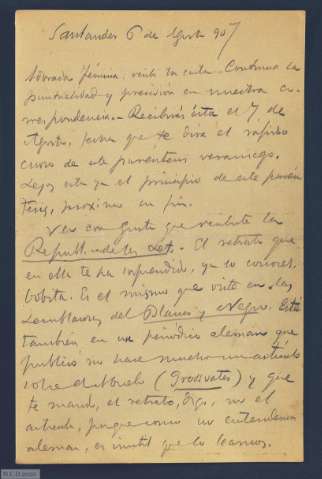 Santander 6 de Agosto 907
Adorada fémina, recibo tu carta. Continúa la
puntualidad y precisión en nuestra co-
rrespondencia. Recibirás ésta el 7 de
Agosto, fecha que te dirá el rápido
curso de este paréntesis veraniego.
Lejos está ya el principio de este parén-
tesis, próximo su fin.
Veo con gusto que recibiste la
República de las Let. El retrato que
en ella te ha sorprendido, ya lo conoces,
bobita. Es el mismo que viste en los
del Blanco y Negro. Está
también en un periódico alemán que
publicó no hace mucho un artículo
sobre el abuelo (Grossvater) y que
te mandé, el retrato, digo, no el
artículo, porque como no entendemos
alemán, es inútil que lo leamos.